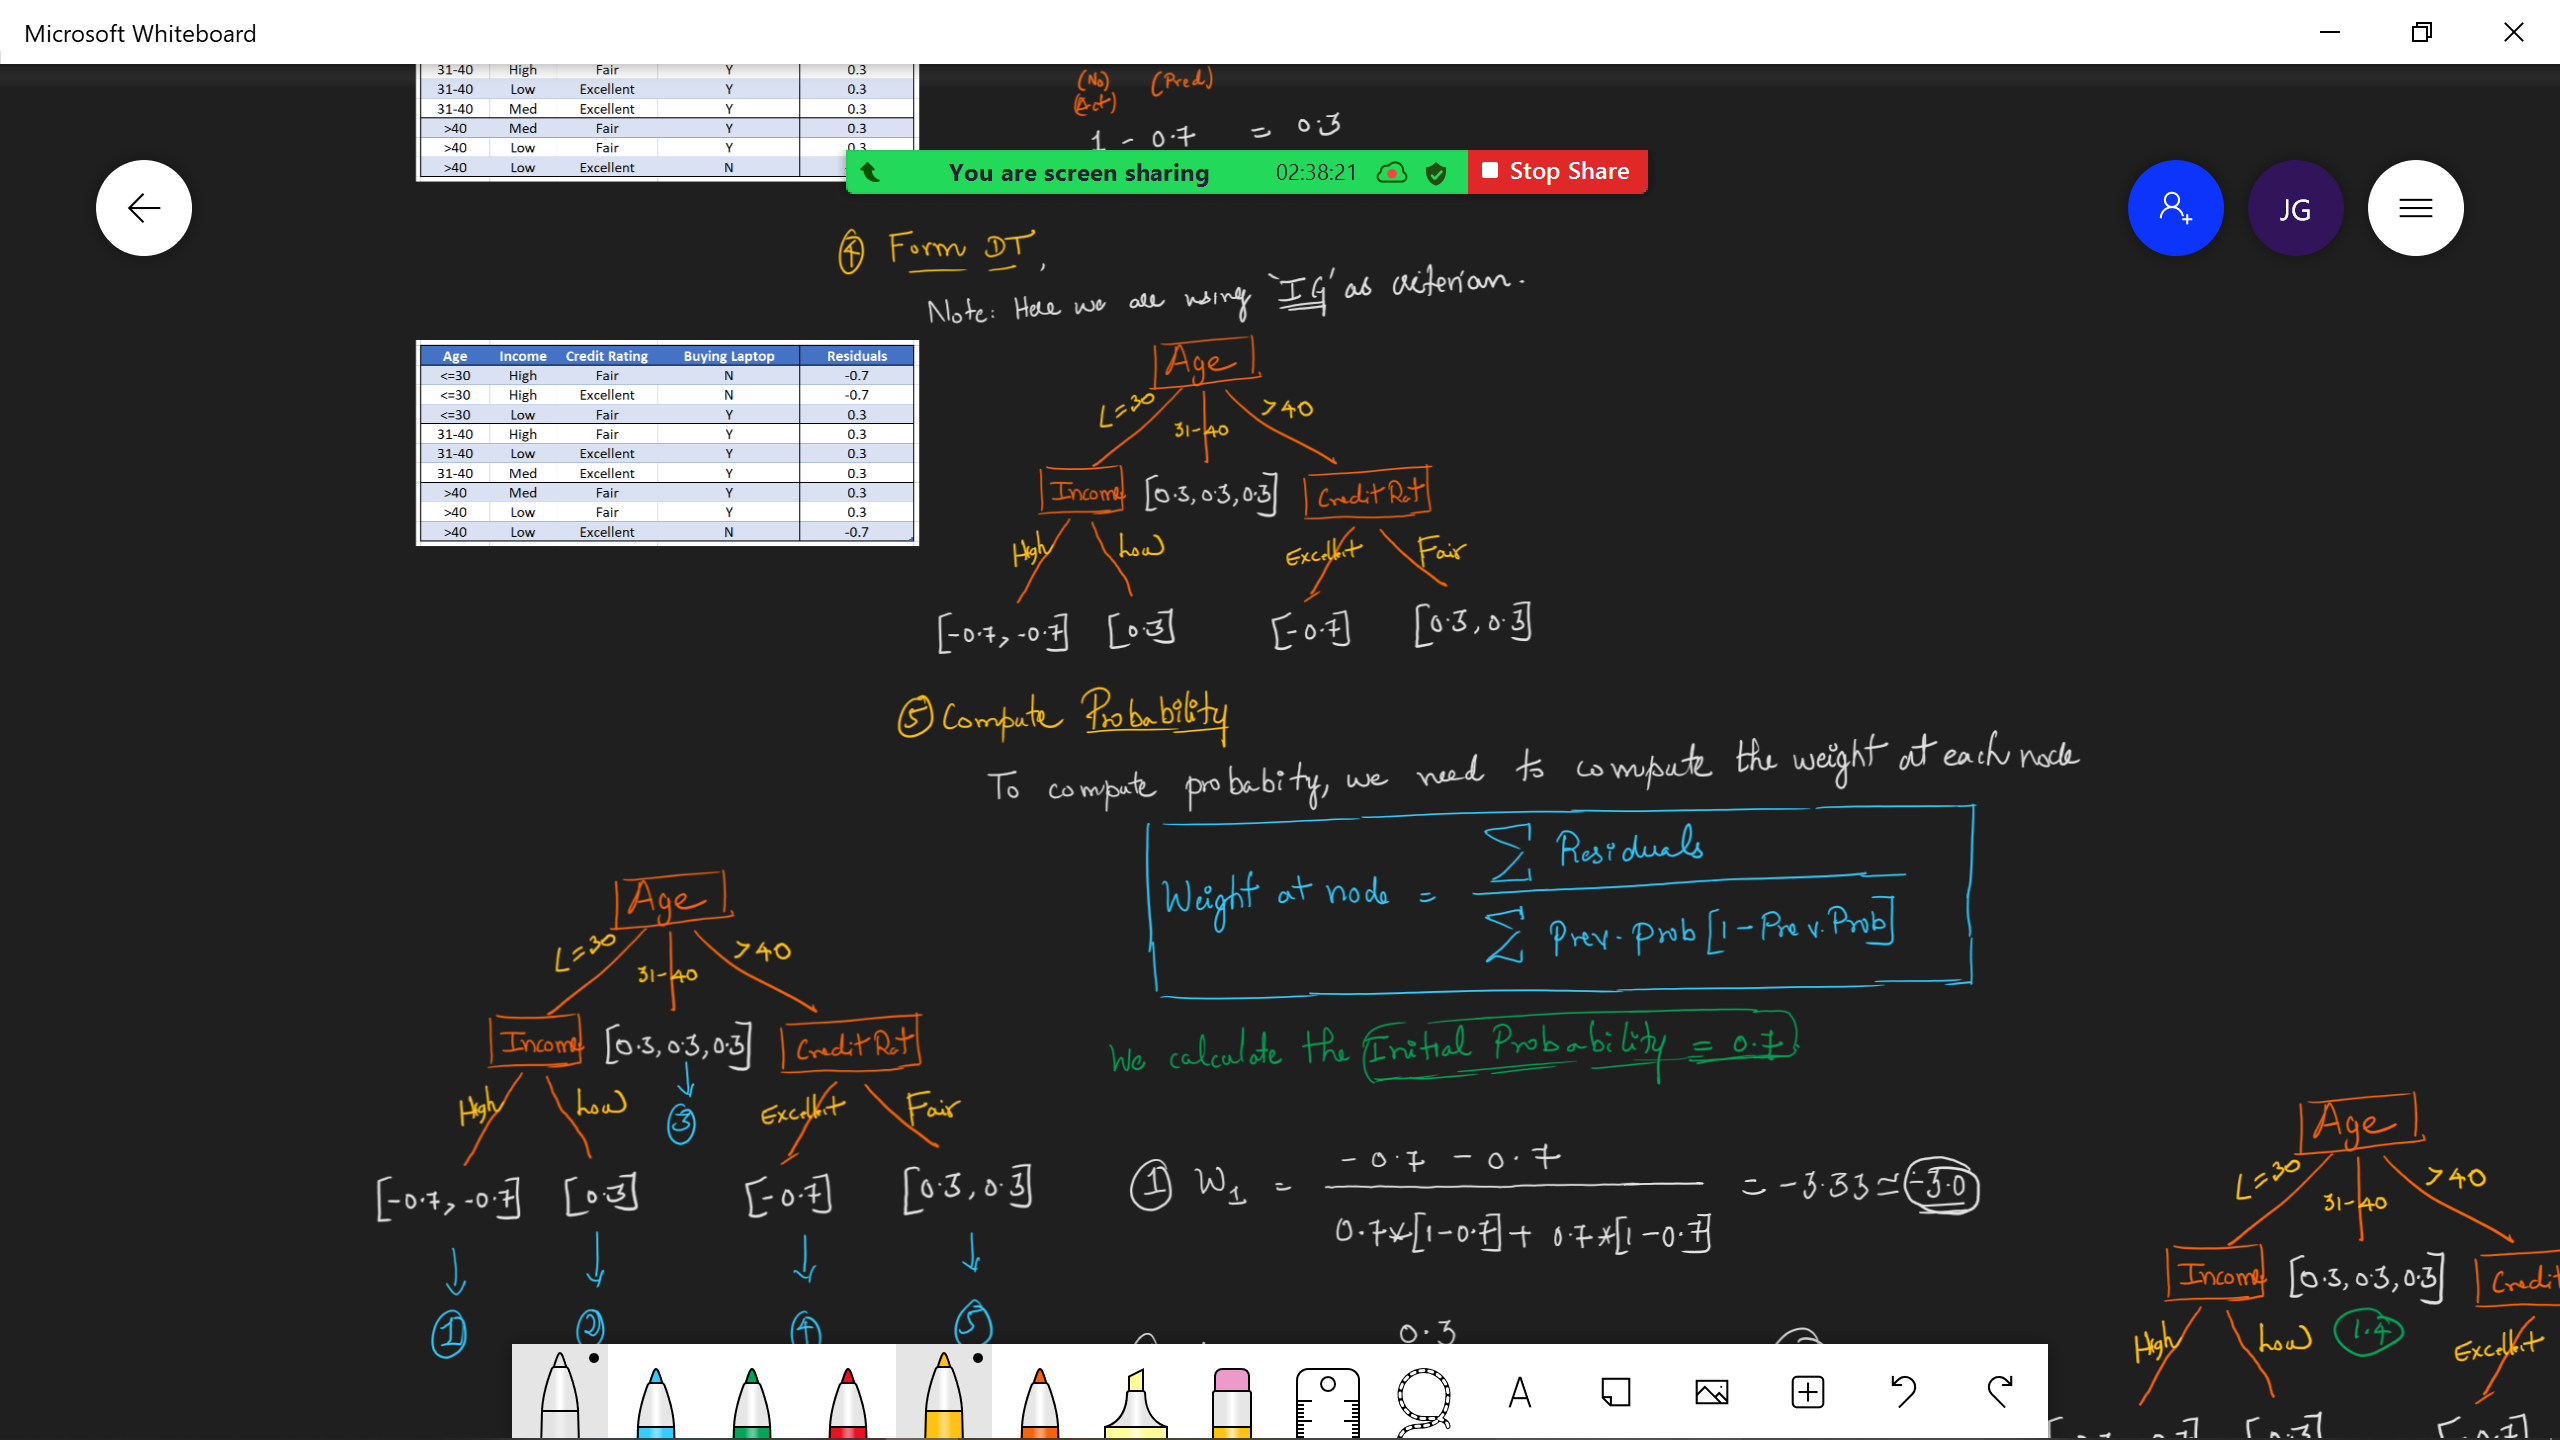 Microsoft Whiteboard
31-40 High Fair Y 0.3
31-40 Low Excellent Y 0.3
31-40 Med Excellent Y 0.3
>40 Med Fair Y 0.3
>40 Low Fair Y 0.3
>40 Low Excellent N
(No) (Pred.)
(Act)
1 - 0.7 = 0.3
You are screen sharing 02:38:21 Stop Share
JG
④ Form DT,
Note: Here we are using 'IG' as criterian.
Age Income Credit Rating Buying Laptop Residuals
<=30 High Fair N -0.7
<=30 High Excellent N -0.7
<=30 Low Fair Y 0.3
31-40 High Fair Y 0.3
31-40 Low Excellent Y 0.3
31-40 Med Excellent Y 0.3
>40 Med Fair Y 0.3
>40 Low Fair Y 0.3
>40 Low Excellent N -0.7
Age
L=30 31-40 >40
Income [0.3, 0.3, 0.3] Credit Rat
High Low Excellent Fair
[-0.7, -0.7] [0.3] [-0.7] [0.3, 0.3]
⑤ Compute Probability
To compute probabity, we need to compute the weight at each node
Weight at node = ∑ Residuals / ∑ Prev. Prob [1 - Prev. Prob]
Age
L=30 31-40 >40
Income [0.3, 0.3, 0.3] Credit Rat
High Low ③ Excellent Fair
[-0.7, -0.7] [0.3] [-0.7] [0.3, 0.3]
① ② ④ ⑤
We calculate the Initial Probability = 0.7
① W1 = -0.7 - 0.7 / 0.7*[1-0.7] + 0.7*[1-0.7] = -3.33 ≃ -3.0
0.3
Age
L=30 31-40 >40
Income [0.3, 0.3, 0.3] Credit
High Low 1.4 Excellent